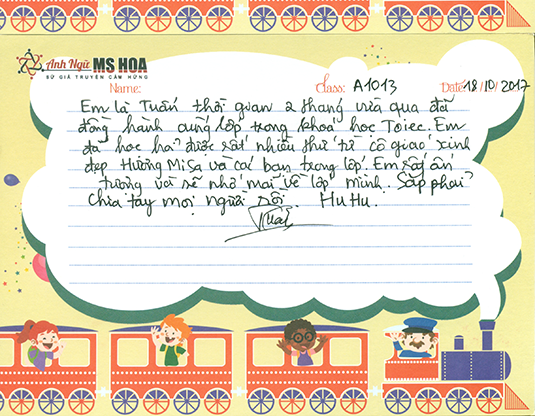 Anh Ngữ MS HOA
SỨ GIẢ TRUYỀN CẢM HỨNG
Name: Class: A1013 Date: 18/10/2017
Em là Tuấn thời gian 2 tháng vừa qua đã
đồng hành cùng lớp trong khoá học Toiec. Em
đã học hỏi được rất nhiều thứ từ cô giáo xinh
đẹp Hương Misa và các bạn trong lớp. Em rất ấn
tượng và sẽ nhớ mãi về lớp mình. Sắp phải
Chia tay mọi người rồi... Hu Hu.